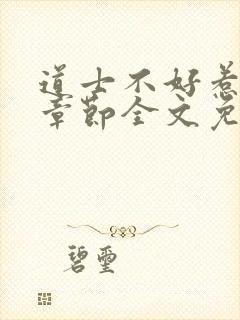 道士不好惹
章节全文免
碧玺